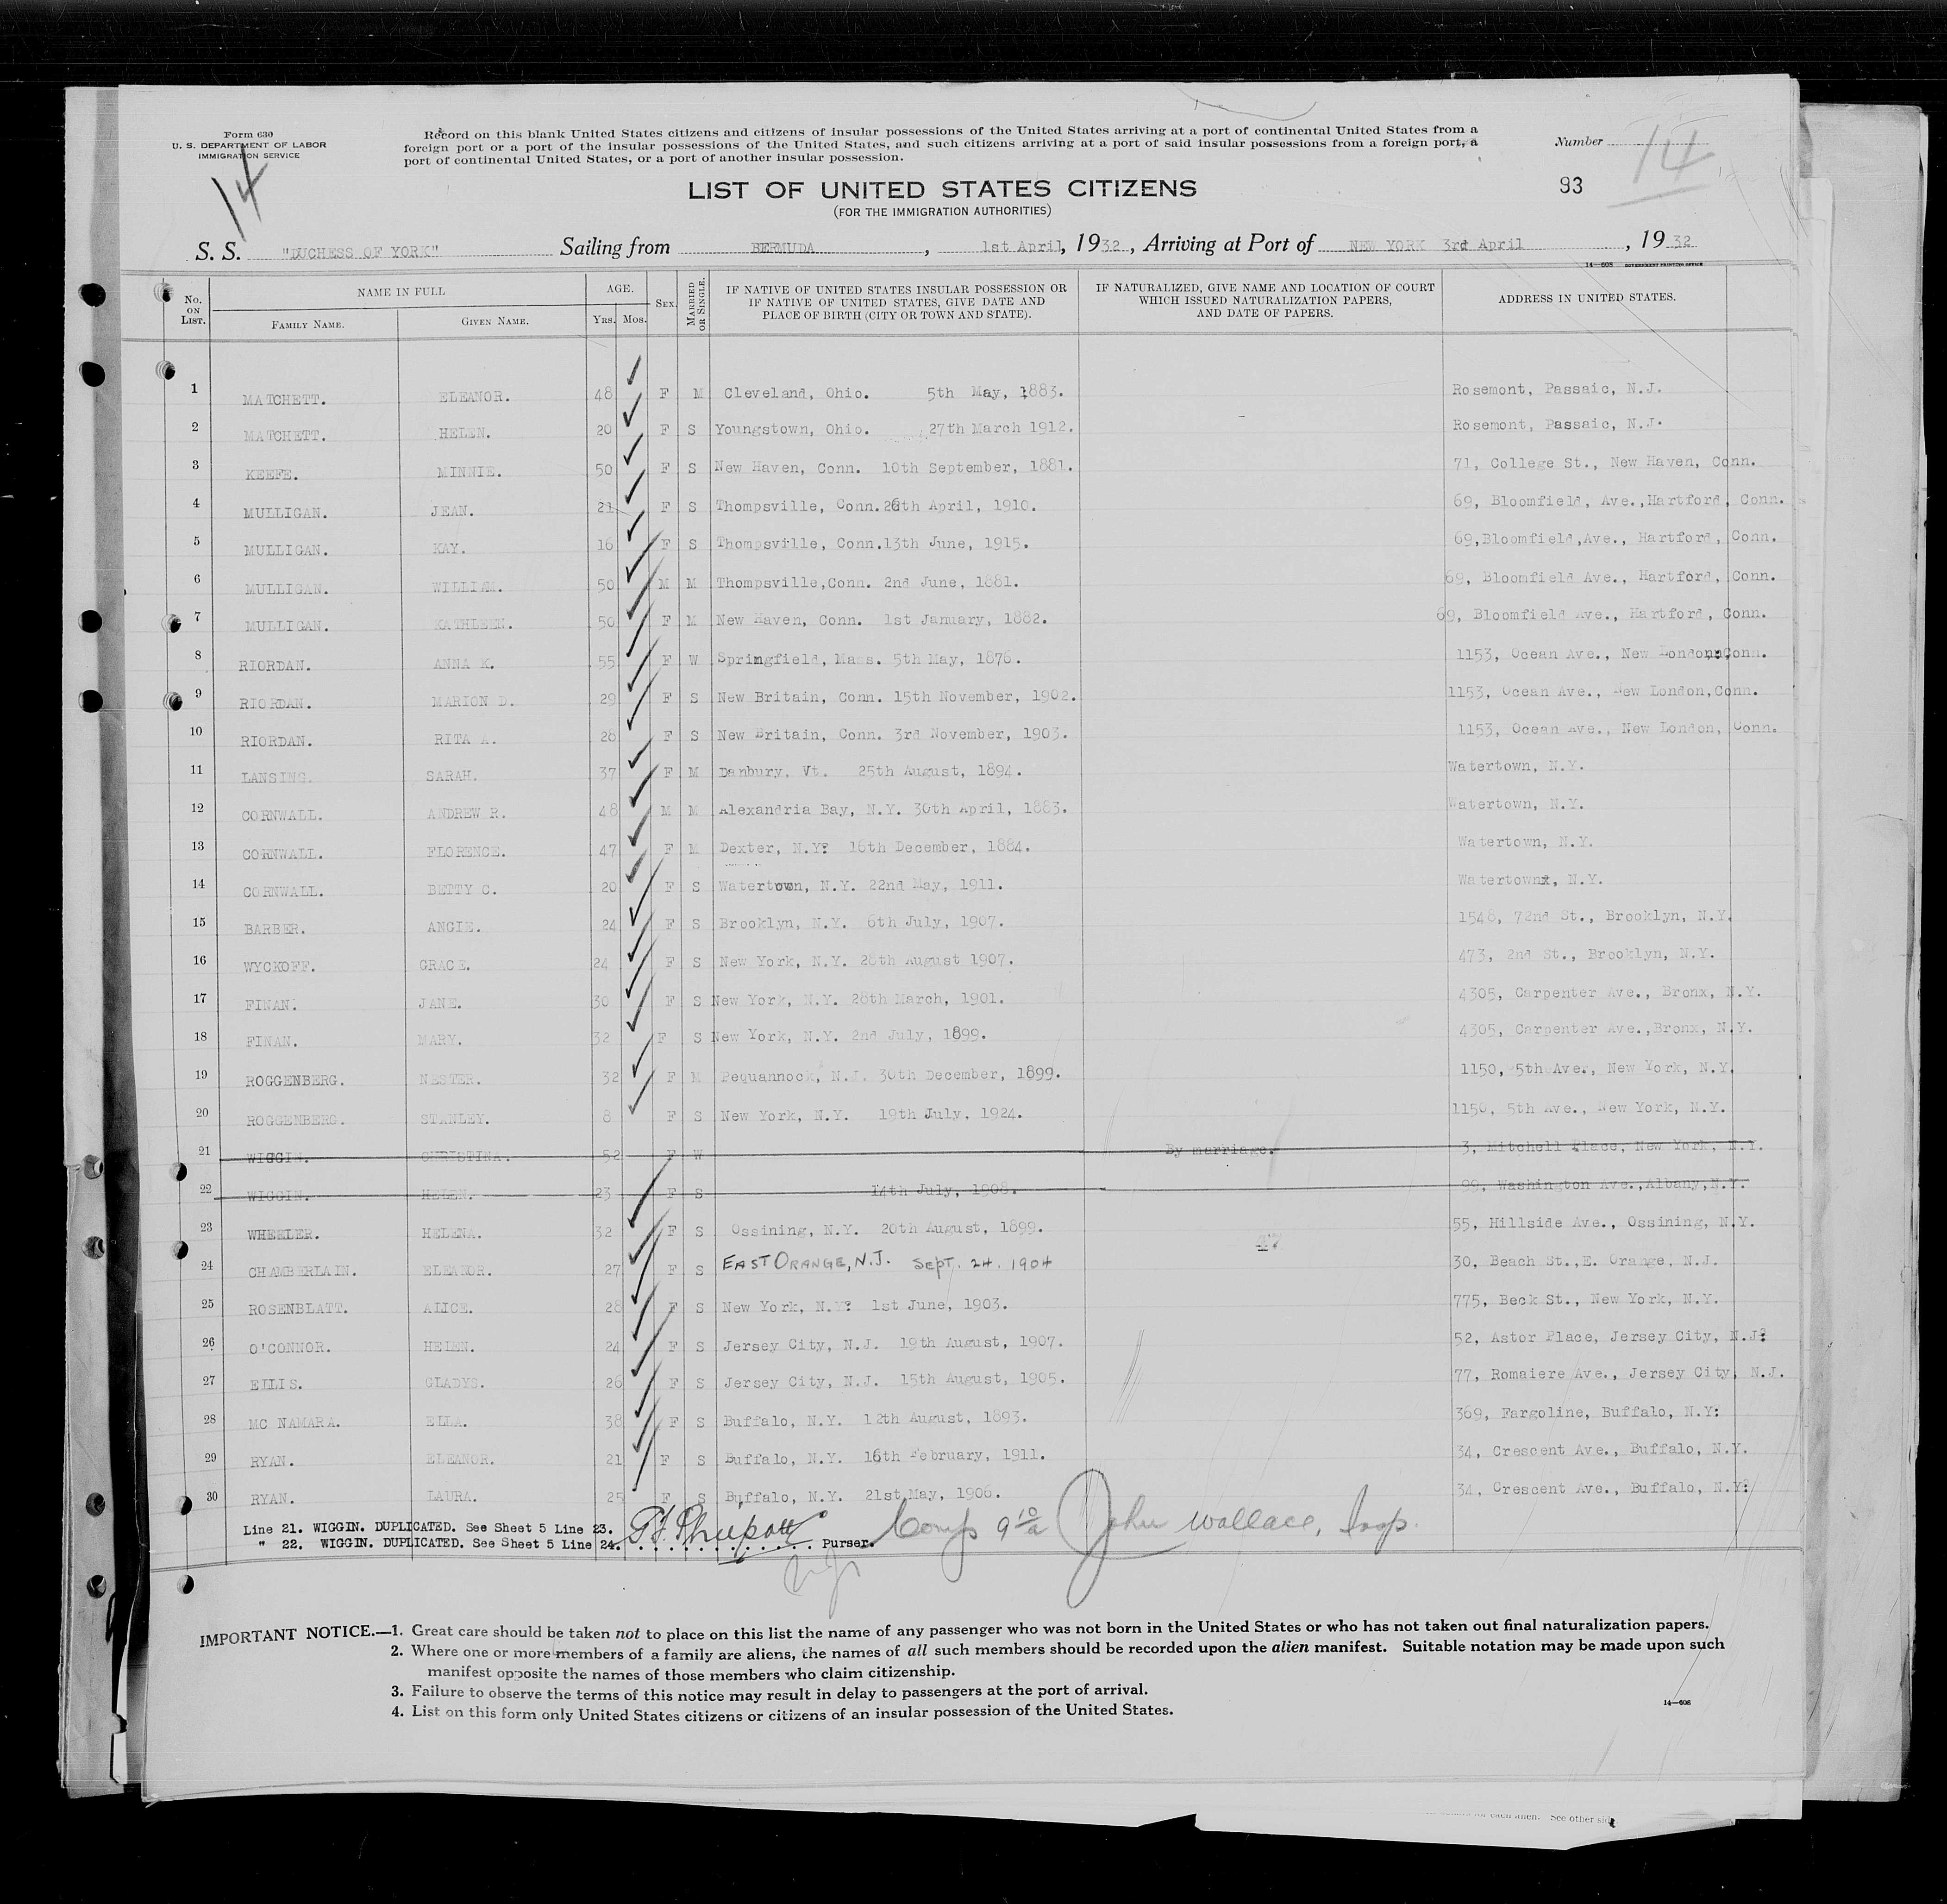 Form 630
U. S. DEPARTMENT OF LABOR
IMMIGRATION SERVICE
14
Record on this blank United States citizens and citizens of insular possessions of the United States arriving at a port of continental United States from a
foreign port or a port of the insular possessions of the United States, and such citizens arriving at a port of said insular possessions from a foreign port, a
port of continental United States, or a port of another insular possession.
Number 14
93
LIST OF UNITED STATES CITIZENS
(FOR THE IMMIGRATION AUTHORITIES)
S. S. "DUCHESS OF YORK" Sailing from BERMUDA, 1st April, 1932, Arriving at Port of NEW YORK 3rd April, 1932
14—608 GOVERNMENT PRINTING OFFICE
No. ON LIST. NAME IN FULL FAMILY NAME. GIVEN NAME. AGE. YRS. MOS. SEX. MARRIED OR SINGLE. IF NATIVE OF UNITED STATES INSULAR POSSESSION OR IF NATIVE OF UNITED STATES, GIVE DATE AND PLACE OF BIRTH (CITY OR TOWN AND STATE). IF NATURALIZED, GIVE NAME AND LOCATION OF COURT WHICH ISSUED NATURALIZATION PAPERS, AND DATE OF PAPERS. ADDRESS IN UNITED STATES.
1 MATCHETT. ELEANOR. 48 F M Cleveland, Ohio. 5th May, 1883. Rosemont, Passaic, N.J.
2 MATCHETT. HELEN. 20 F S Youngstown, Ohio. 27th March 1912. Rosemont, Passaic, N.J.
3 KEEFE. MINNIE. 50 F S New Haven, Conn. 10th September, 1881. 71, College St., New Haven, Conn.
4 MULLIGAN. JEAN. 21 F S Thompsville, Conn. 26th April, 1910. 69, Bloomfield, Ave.,Hartford, Conn.
5 MULLIGAN. KAY. 16 F S Thompsville, Conn.13th June, 1915. 69,Bloomfield,Ave., Hartford, Conn.
6 MULLIGAN. WILLIAM. 50 M M Thompsville,Conn. 2nd June, 1881. 69, Bloomfield Ave., Hartford, Conn.
7 MULLIGAN. KATHLEEN. 50 F M New Haven, Conn. 1st January, 1882. 69, Bloomfield Ave., Hartford, Conn.
8 RIORDAN. ANNA K. 55 F W Springfield, Mass. 5th May, 1876. 1153, Ocean Ave., New London, Conn.
9 RIORDAN. MARION D. 29 F S New Britain, Conn. 15th November, 1902. 1153, Ocean Ave., New London,Conn.
10 RIORDAN. RITA A. 28 F S New Britain, Conn. 3rd November, 1903. 1153, Ocean Ave., New London, Conn.
11 LANSING. SARAH. 37 F M Danbury, Vt. 25th August, 1894. Watertown, N.Y.
12 CORNWALL. ANDREW R. 48 M M Alexandria Bay, N.Y. 30th April, 1883. Watertown, N.Y.
13 CORNWALL. FLORENCE. 47 F M Dexter, N.Y? 16th December, 1884. Watertown, N.Y.
14 CORNWALL. BETTY C. 20 F S Watertown, N.Y. 22nd May, 1911. Watertown, N.Y.
15 BARBER. ANGIE. 24 F S Brooklyn, N.Y. 6th July, 1907. 1548, 72nd St., Brooklyn, N.Y.
16 WYCKOFF. GRACE. 24 F S New York, N.Y. 28th August 1907. 473, 2nd St., Brooklyn, N.Y.
17 FINAN. JANE. 30 F S New York, N.Y. 28th March, 1901. 4305, Carpenter Ave., Bronx, N.Y.
18 FINAN. MARY. 32 F S New York, N.Y. 2nd July, 1899. 4305, Carpenter Ave.,Bronx, N.Y.
19 ROGGENBERG. NESTER. 32 F M Pequannock, N.J. 30th December, 1899. 1150, 5th Ave., New York, N.Y.
20 ROGGENBERG. STANLEY. 8 F S New York, N.Y. 19th July, 1924. 1150, 5th Ave., New York, N.Y.
21 WIGGIN. CHRISTINA. 52 F W By marriage. 3, Mitchell Place, New York, N.Y.
22 WIGGIN. HELEN. 23 F S 14th July, 1908. 99, Washington Ave.,Albany,N.Y.
23 WHEELER. HELENA. 32 F S Ossining, N.Y. 20th August, 1899. 55, Hillside Ave., Ossining, N.Y.
24 CHAMBERLAIN. ELEANOR. 27 F S EAST ORANGE, N.J. SEPT. 24. 1904 30, Beach St.,E. Orange, N.J.
25 ROSENBLATT. ALICE. 28 F S New York, N.Y? 1st June, 1903. 775, Beck St., New York, N.Y.
26 O'CONNOR. HELEN. 24 F S Jersey City, N.J. 19th August, 1907. 52, Astor Place, Jersey City, N.J?
27 ELLIS. GLADYS. 26 F S Jersey City, N.J. 15th August, 1905. 77, Romaiere Ave., Jersey City, N.J.
28 MC NAMARA. ELLA. 38 F S Buffalo, N.Y. 12th August, 1893. 369, Fargoline, Buffalo, N.Y:
29 RYAN. ELEANOR. 21 F S Buffalo, N.Y. 16th February, 1911. 34, Crescent Ave., Buffalo, N.Y.
30 RYAN. LAURA. 25 F S Buffalo, N.Y. 21st May, 1906. 34, Crescent Ave., Buffalo, N.Y?
Line 21. WIGGIN. DUPLICATED. See Sheet 5 Line 23.
" 22. WIGGIN. DUPLICATED. See Sheet 5 Line 24. Purser. Comp 9 10/a John Wallace, Insp.
IMPORTANT NOTICE.—1. Great care should be taken not to place on this list the name of any passenger who was not born in the United States or who has not taken out final naturalization papers.
2. Where one or more members of a family are aliens, the names of all such members should be recorded upon the alien manifest. Suitable notation may be made upon such
manifest opposite the names of those members who claim citizenship.
3. Failure to observe the terms of this notice may result in delay to passengers at the port of arrival.
14—608
4. List on this form only United States citizens or citizens of an insular possession of the United States.
See other side